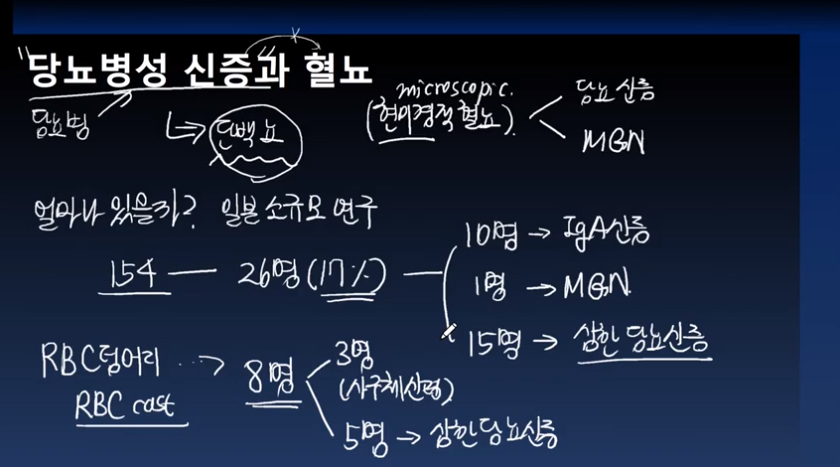 "당뇨병성 신증"과 혈뇨
당뇨병
단백뇨
microscopic.
(현미경적 혈뇨)
당뇨신증
MGN
얼마나 있을까? 일본 소규모 연구
154 — 26명 (17%)
10명 → IgA신증
1명 → MGN
15명 → 심한 당뇨신증
RBC덩어리 ···→ 8명
RBC cast
3명
(사구체신염)
5명 → 심한 당뇨신증